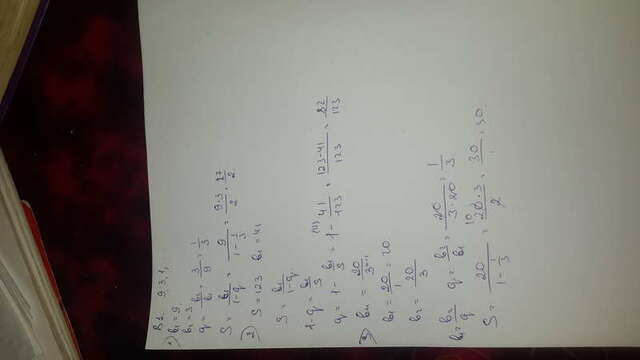 В1. 9.3.1.
1) b₁=9
b₂=3
q = b₂/b₁ = 3/9 = 1/3
S = b₁/(1-q) = 9/(1-1/3) = 9·3/2 = 27/2
2) S=123 b₁=41
S = b₁/(1-q)
1-q = b₁/S
q = 1 - b₁/S = 1 - 41/123 = (123-41)/123 = 82/123
3) bₙ = 20/3ⁿ⁻¹
b₁ = 20/1 = 20
b₂ = 20/3
q = b₂/b₁ = 20/(3·20) = 1/3
S = 20/(1-1/3) = 20·3/2 = 30